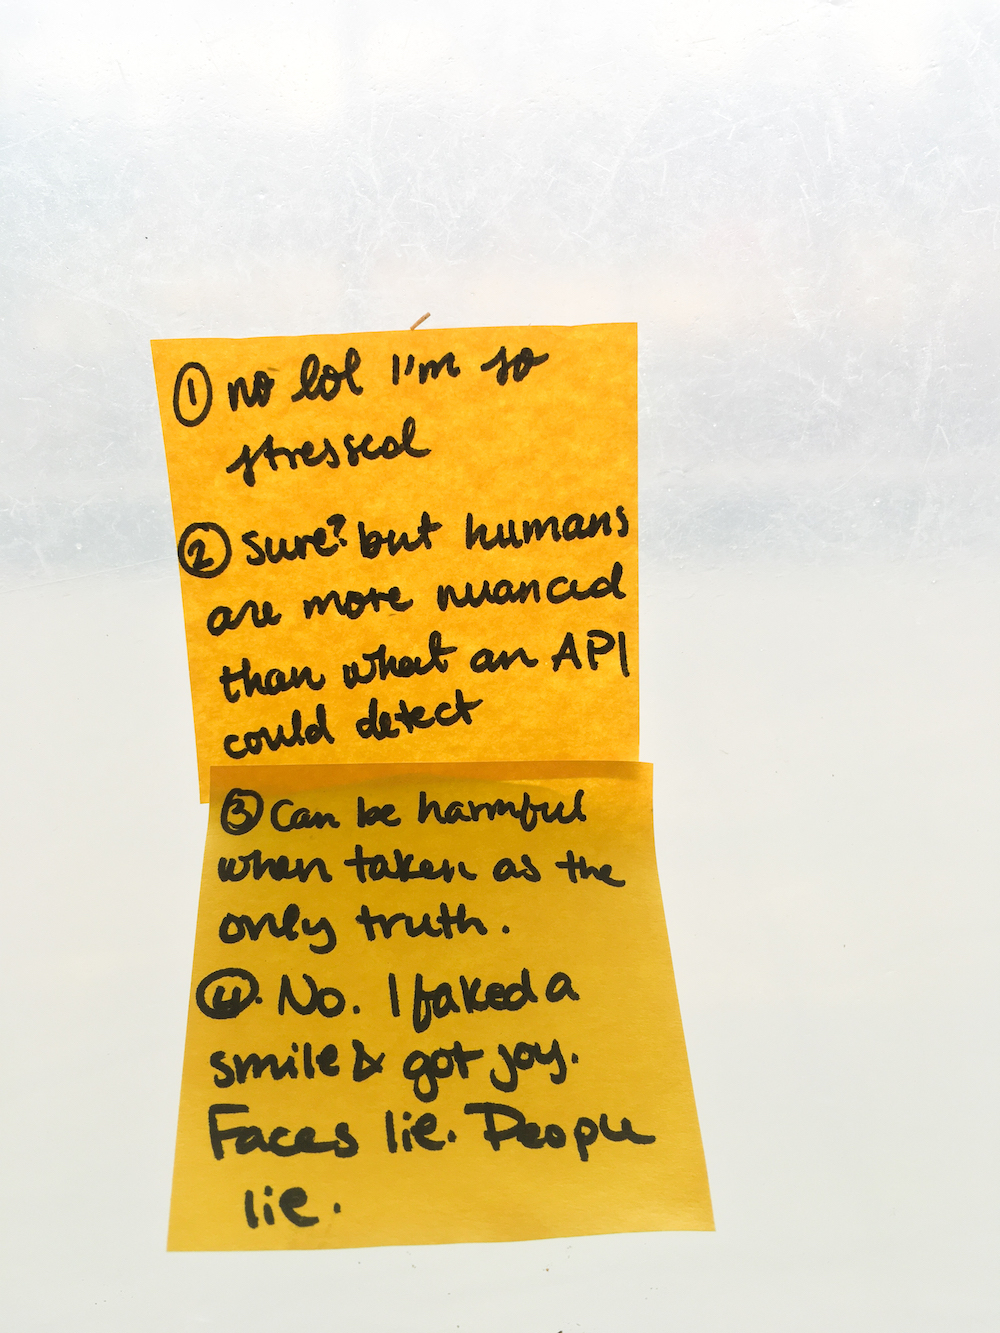 ① no lol I'm so
stressed
② Sure? but humans
are more nuanced
than what an API
could detect
③ Can be harmful
when taken as the
only truth.
④. No. I faked a
smile & got joy.
Faces lie. People
lie.